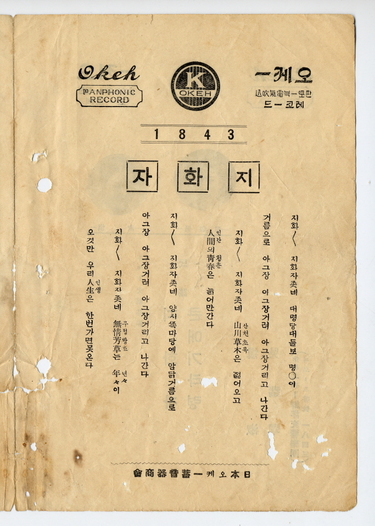 Okeh
PANPHONIC
RECORD
K
OKEH
오케ー
電氣吹込
레코ー드
1843
지화자
지화〱 지화자죳네 대명당대들보 명○이
거름으로 아그장 아그장거려 아그장거리고 나간다
지화〱 지화자죳네 山川草木은 젊어오고
人間의靑春은 늙어만간다
지화〱 지화자죳네 암닭거름으로
아그장 아그장거려 아그장거리고 나간다
지화〱 지화자죳네 無情芳草는 年々이
오것만 우리人生은 한번가면못온다
日本오케ー蓄音器商會